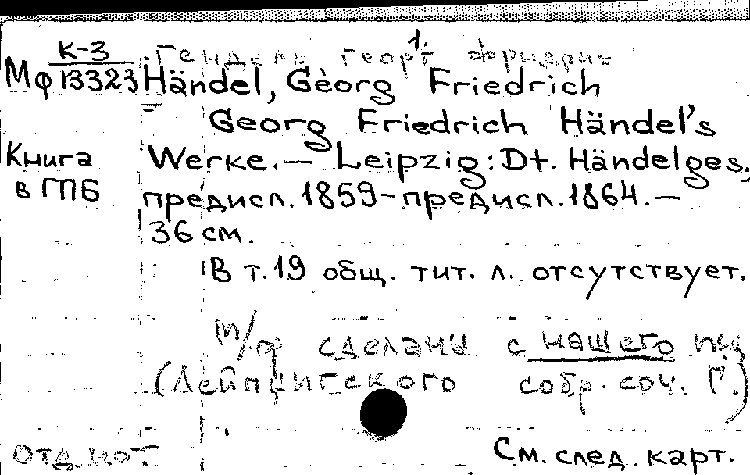 К-3 Гендель Георг Фридрих 1.
Мф 13323 Händel, Georg Friedrich
Georg Friedrich Händel's
Книга Werke. — Leipzig: Dt. Händelges,
в ГПБ предисл. 1859-предисл. 1864. —
36 см.
В т. 19 общ. тит. л. отсутствует.
м/ф сделаны с нашего
(Лейпцигского собр. соч. Г.)
Отд. нот. См. след. карт.